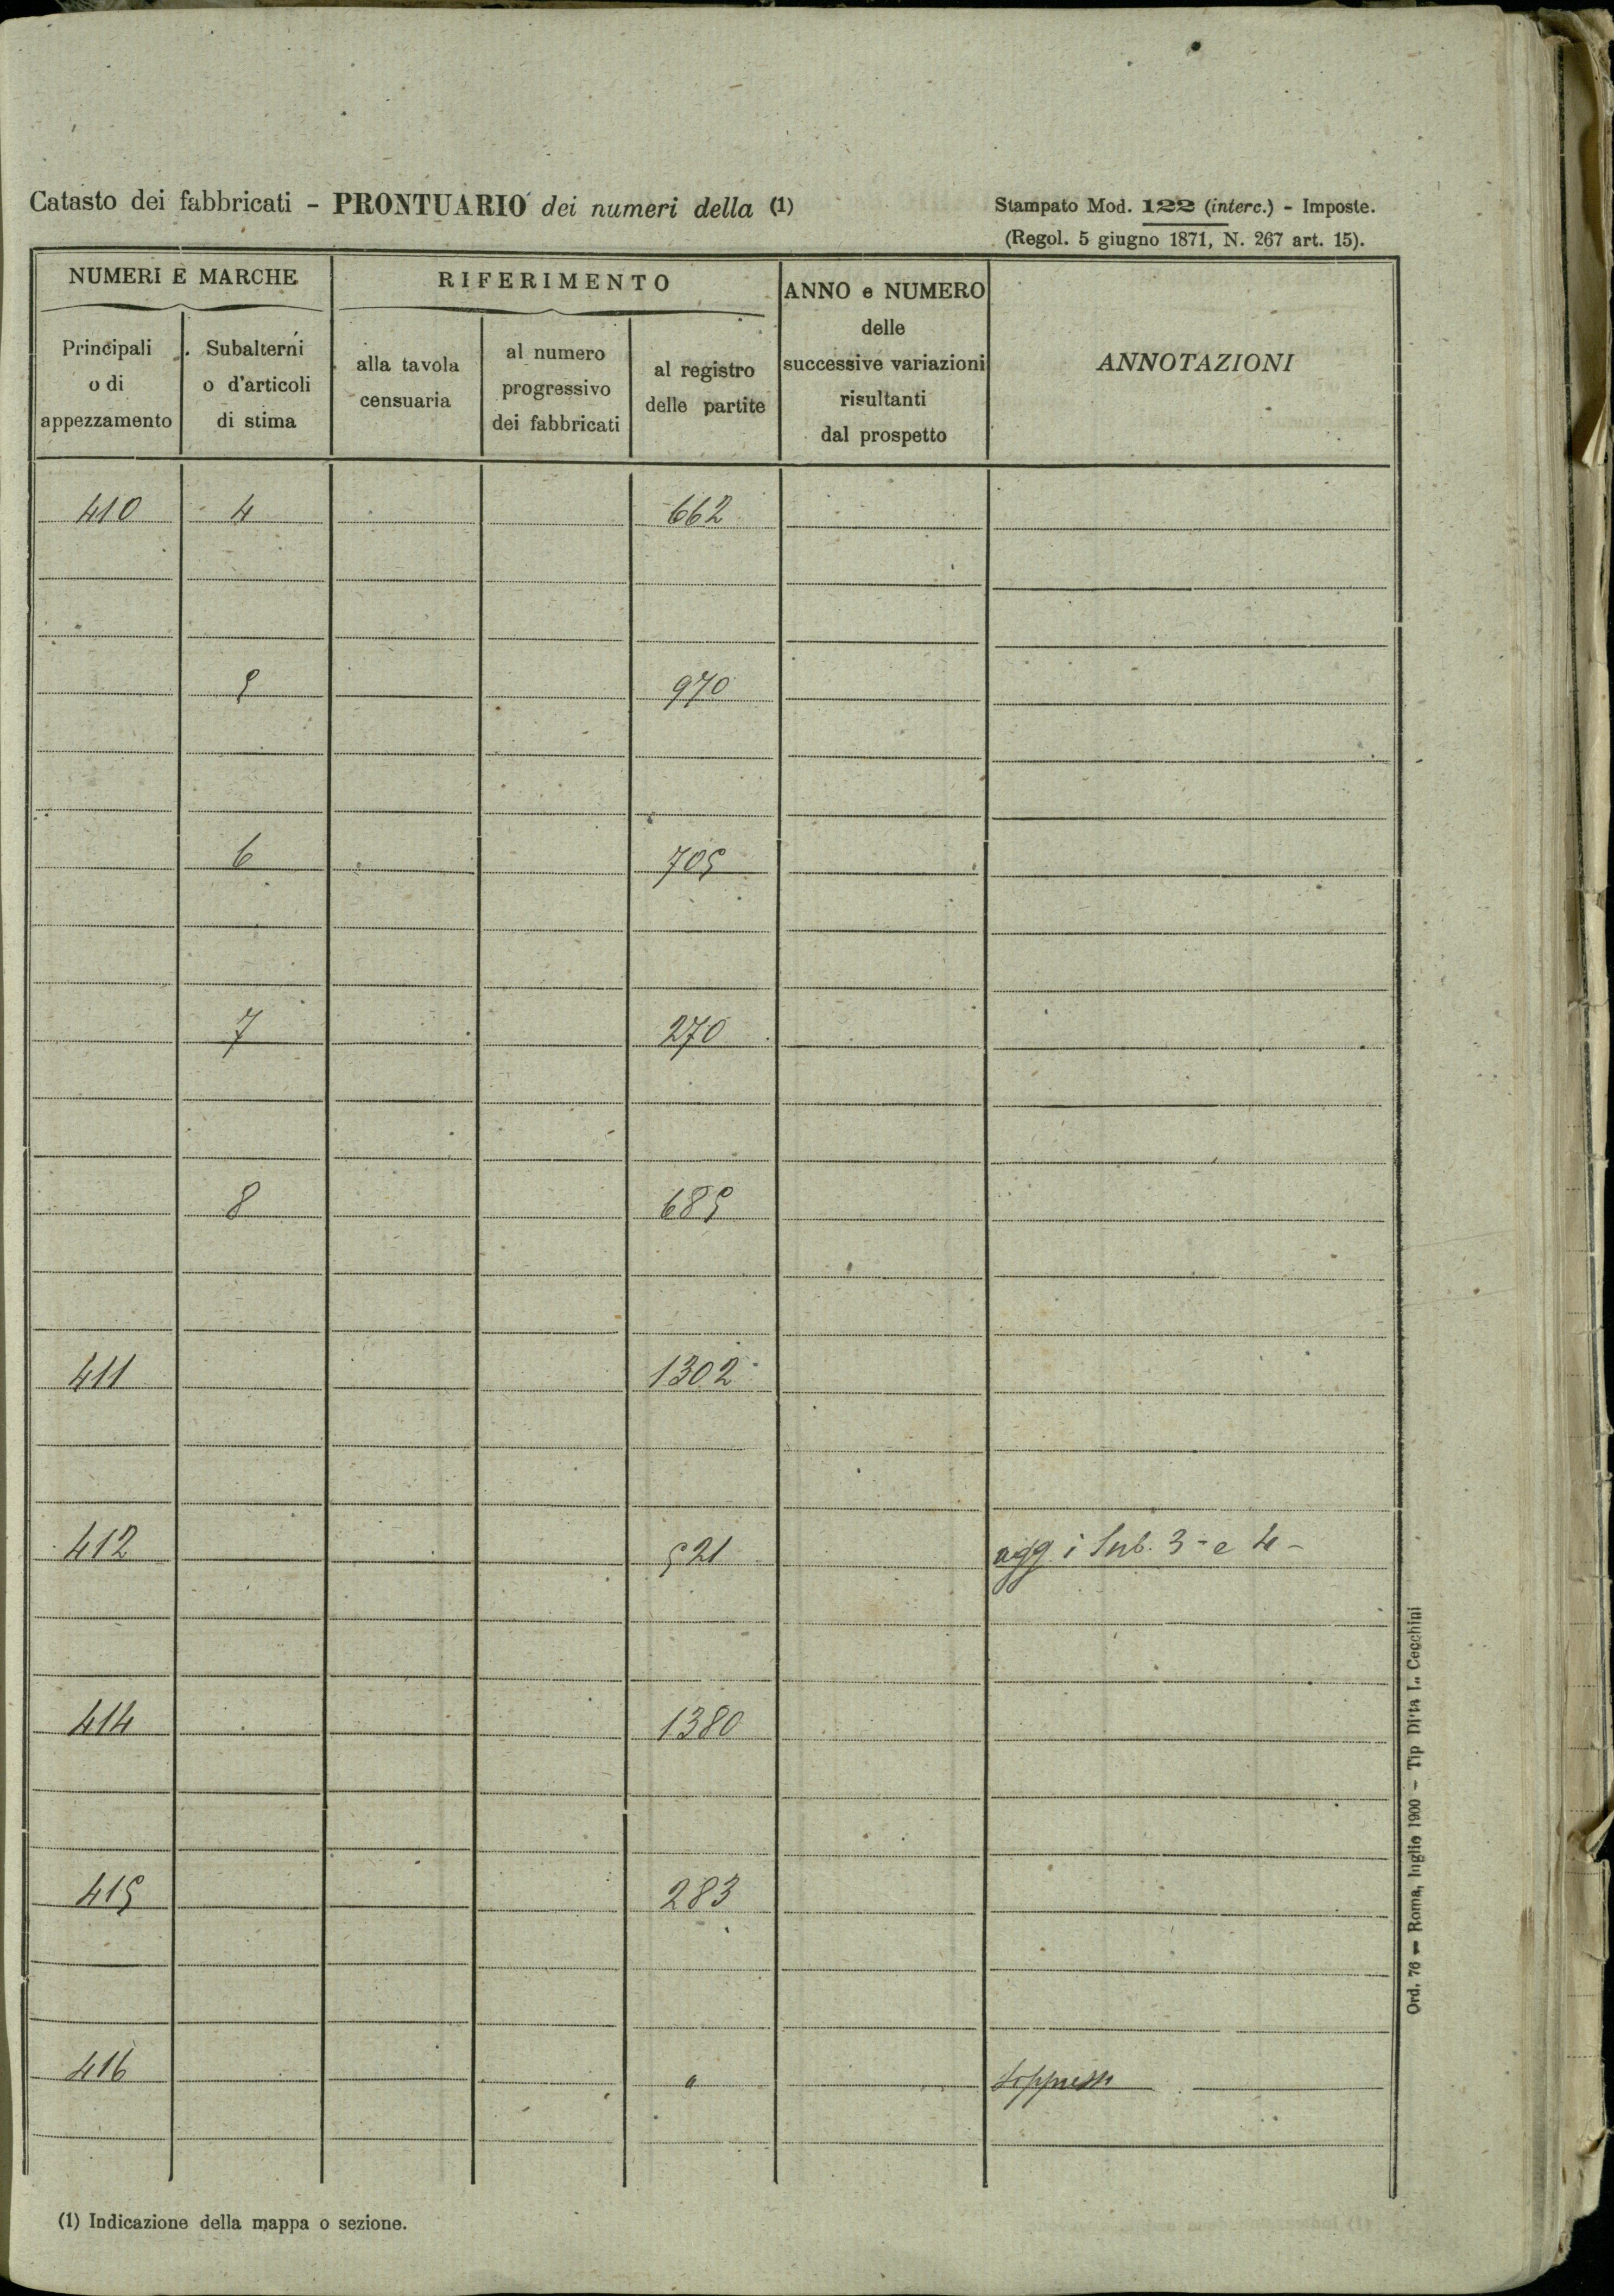 Catasto dei fabbricati - PRONTUARIO dei numeri della (1)
Stampato Mod. 122 (interc.) - Imposte.
(Regol. 5 giugno 1871, N. 267 art. 15).
NUMERI E MARCHE
RIFERIMENTO
ANNO e NUMERO
delle
successive variazioni
risultanti
dal prospetto
ANNOTAZIONI
Principali
o di
appezzamento
Subalterni
o d'articoli
di stima
alla tavola
censuaria
al numero
progressivo
dei fabbricati
al registro
delle partite
410 4 662
5 970
6 705
7 270
8 685
411 1302
412 521 agg. i Sub. 3 - e 4 -
414 1380
415 283
416 " soppresso
(1) Indicazione della mappa o sezione.
Ord. 76 — Roma, luglio 1900 - Tip Ditta L. Cecchini